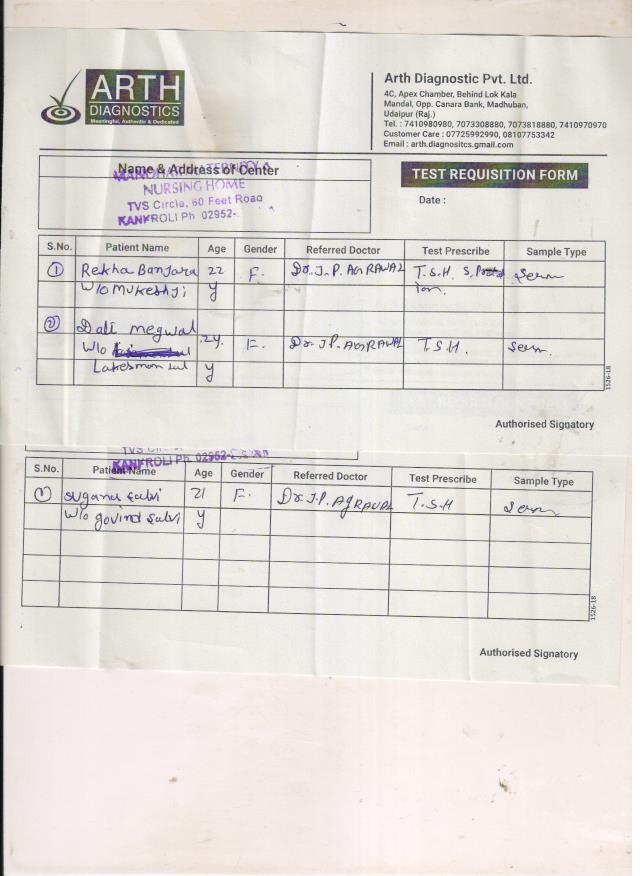 ARTH
DIAGNOSTICS
Meaningful, Authentic & Dedicated
Arth Diagnostic Pvt. Ltd.
4C, Apex Chamber, Behind Lok Kala
Mandal, Opp. Canara Bank, Madhuban,
Udaipur (Raj.)
Tel. : 7410980980, 7073308880, 7073818880, 7410970970
Customer Care : 07725992990, 08107753342
Email : arth.diagnositcs.gmail.com
Name & Address of Center
NURSING HOME
TVS Circle, 60 Feet Road
KANKROLI Ph 02952-
TEST REQUISITION FORM
Date :
S.No. Patient Name Age Gender Referred Doctor Test Prescribe Sample Type
1 Rekha Banjara 22 F. Dr. J. P. AGRAWAL T.S.H. S.
W/o Mukeshji y
2 Dali megwal 24. F. Dr. J P. AGRAWAL T.S.H.
W/o
y
1526-18
Authorised Signatory
TVS
KANKROLI Ph 02952-
S.No. Patient Name Age Gender Referred Doctor Test Prescribe Sample Type
1 salvi 21 F. Dr. J.P. AGRAWAL T.S.H
W/o govind salvi y
1526-18
Authorised Signatory